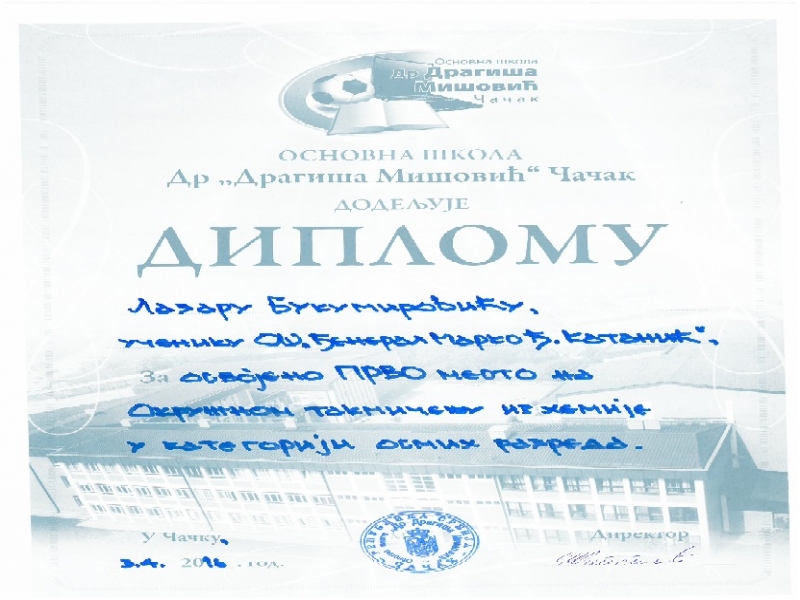 Основна школа
Др Драгиша
Мишовић
Чачак
ОСНОВНА ШКОЛА
Др „Драгиша Мишовић“ Чачак
ДОДЕЉУЈЕ
ДИПЛОМУ
Лазару Букумировићу,
ученику ОШ „Ђенерал Марко Ђ. Катанић“,
За освојено ПРВО место на
Окружном такмичењу из хемије
у категорији осмих разреда.
У Чачку,
Директор
3.4. 2016. год.